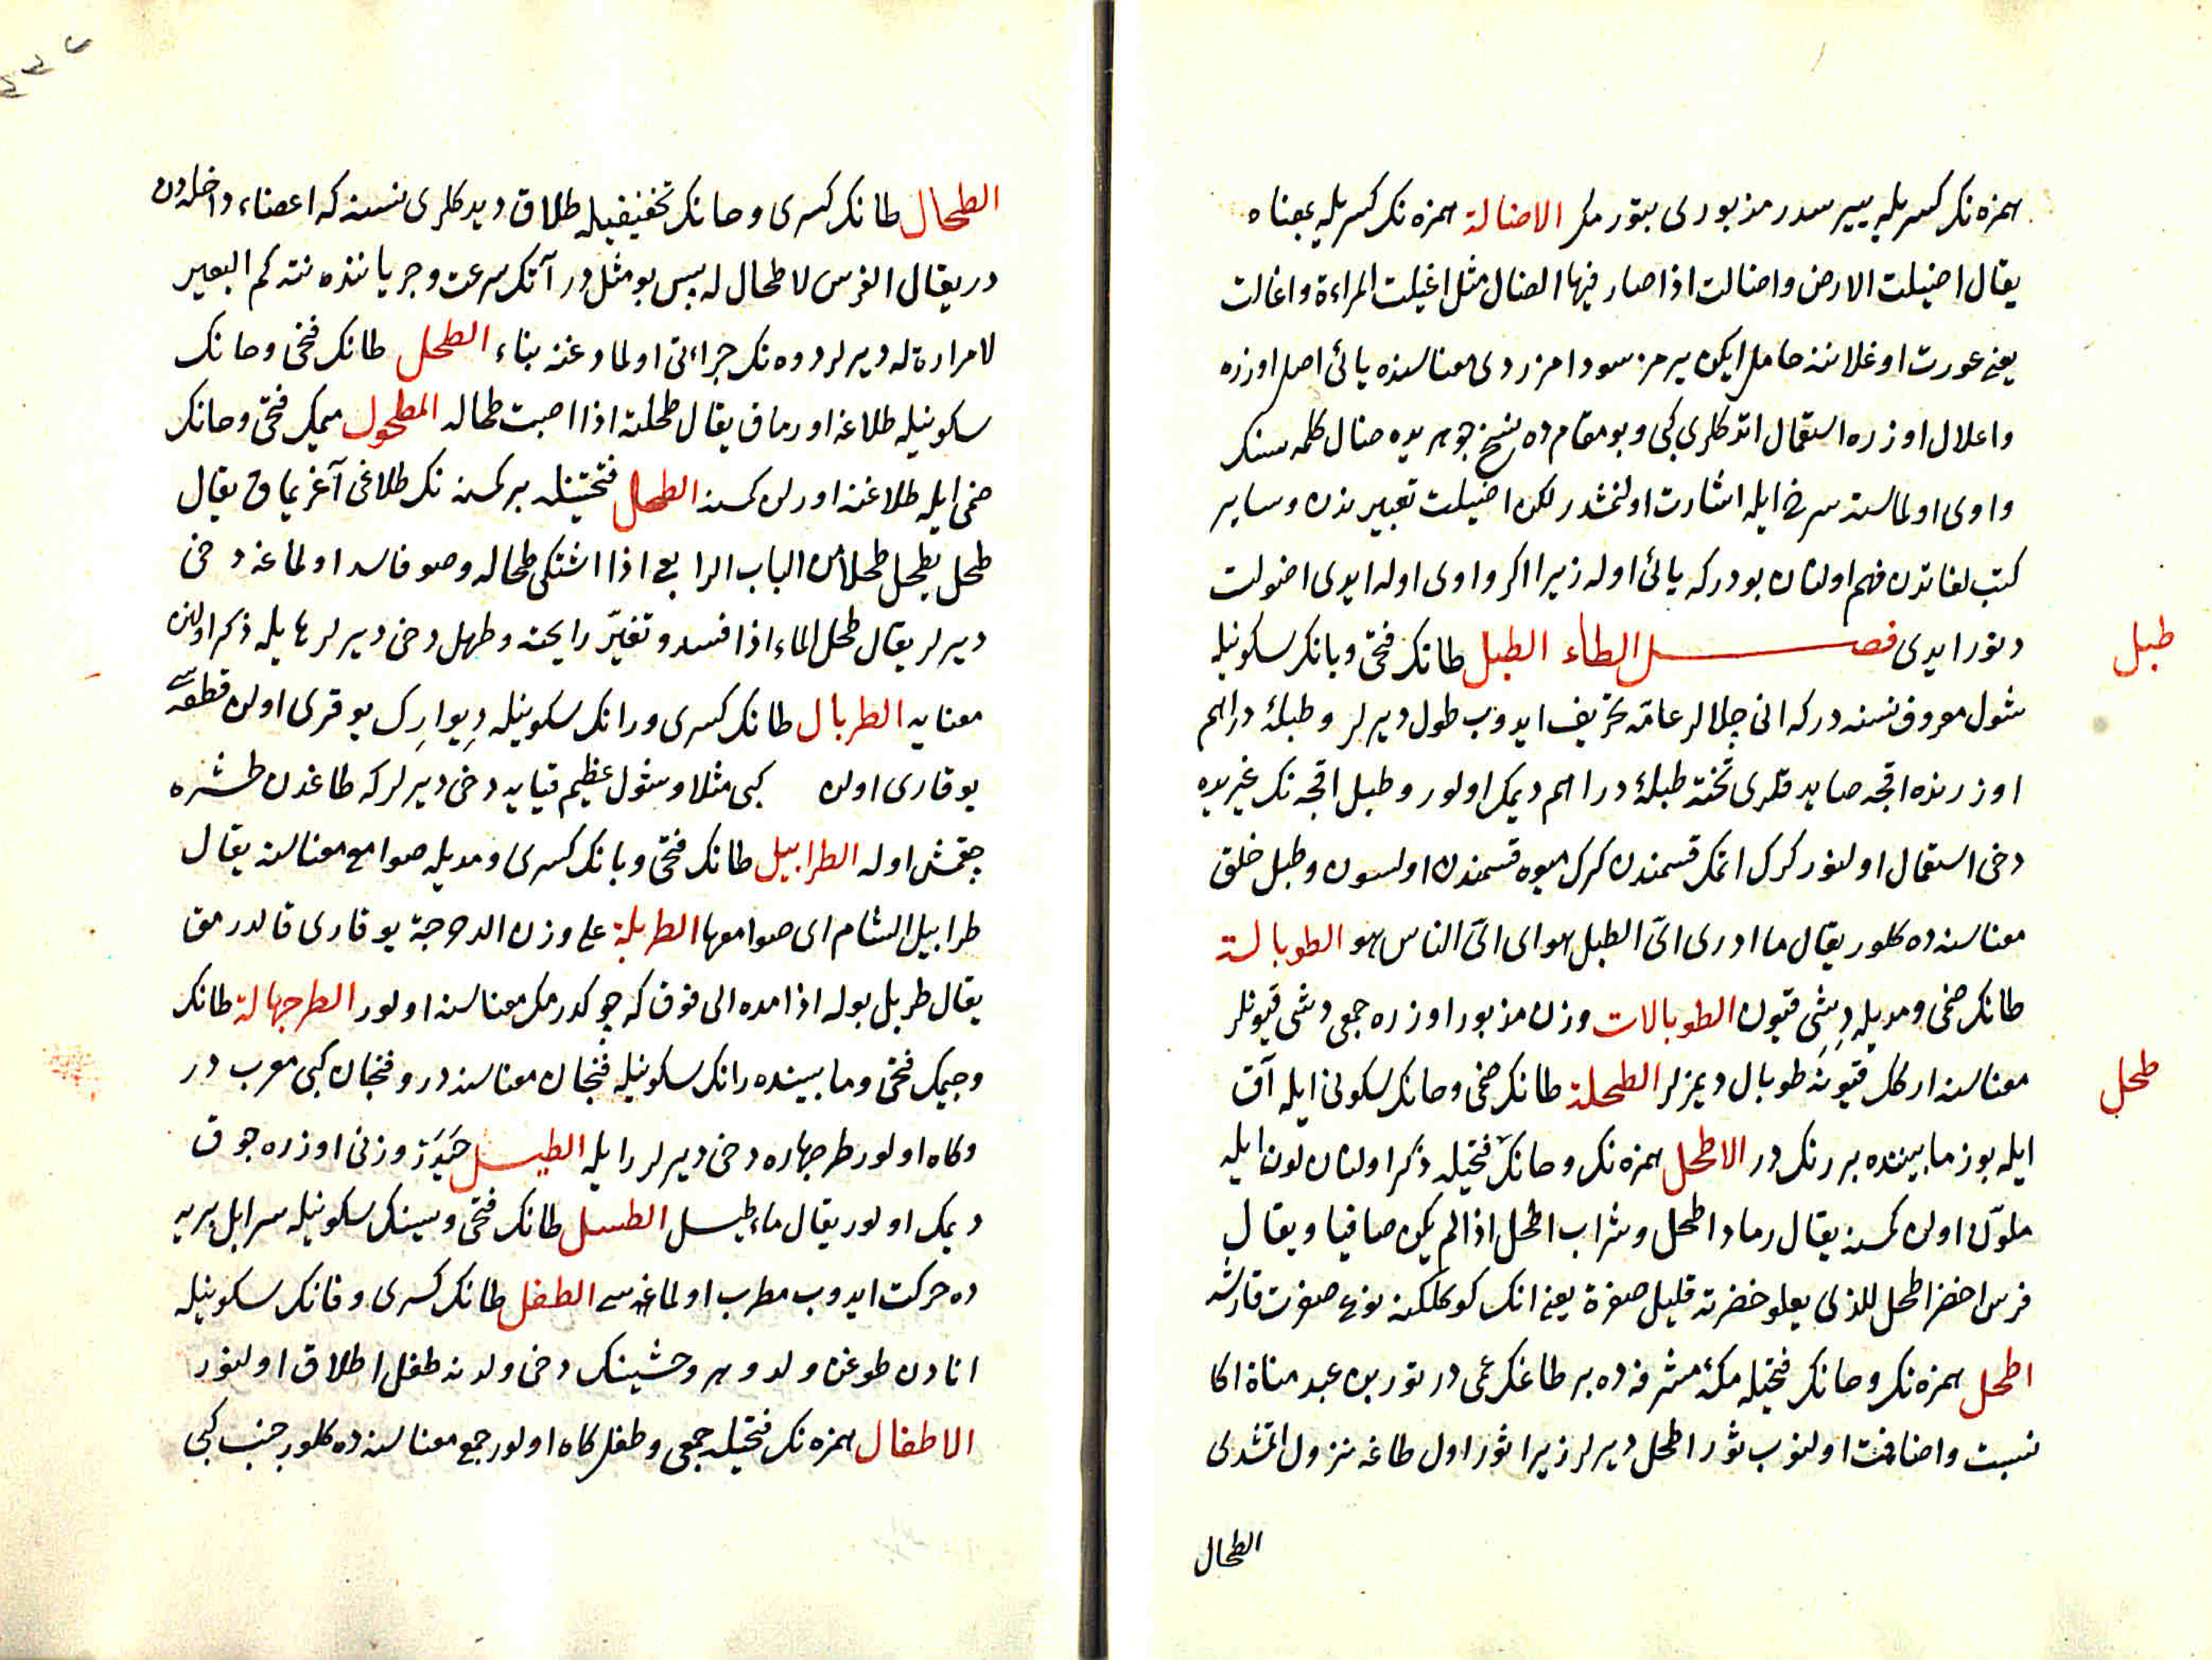 همزه نك كسريله ييير سدر مزبورى بتورمك الاضالة همزه نك كسريله بمعناه
يقال اضيلت الارض واضالت اذا صار فيها الضال مثل اغيلت المراءة واغالت
يعنى عورت اوغلاننه حامل ايكن يرمز سود امزردى معناسنده يائى اصل اوزره
واعلال اوزره استعمال اتدكلرى كبى وبو مقام ده نسخ جوهريده ضال كلمه سنك
واوى اولماسنه سرخ ايله اشارت اولنمشدر لكن اضيلت تعبيرندن وساير
كتب لغاتدن فهم اولنان بودركه يائى اوله زيرا اكر واوى اوله ايدى اضولت
دنور ايدى فصل الطاء الطبل طانك فتحى وبانك سكونيله
طبل
شول معروف نسنه دركه انى چلالر عامّه تحريف ايدوب طول ديرلر وطبلۀ دراهم
اوزرنده اقچه صايدقلرى تخته طبلۀ دراهم ديمك اولور وطبل اقچه نك غيريده
دخى استعمال اولنور كرك اتمك قسمندن كرك ميوه قسمندن اولسون وطبل خلق
معناسنه ده كلور يقال ما ادرى اىّ الطبل هو اى اىّ الناس هو الطوبالة
طانك ضمى ومديله دِشى قيون الطوبالات وزن مذبور اوزره جمعى دشى قيونلر
معناسنه اركك قيونه طوبال ديمزلر الطحلة طانك ضمى وحانك سكونى ايله آق
طحل
ايله بوز مابيننده بر رنكدر الاطحل همزه نك وحانك فتحيله ذكر اولنان لون ايله
ملوّن اولن كمسنه يقال رماد اطحل وشراب اطحل اذا لم يكن صافيا ويقال
فرس اخضر اطحل للذى يعلو خضرته قليل صفرة يعنى انك كوكلكنه نوع صفرت قارشه
اطحل همزه نك وحانك فتحيله مكّۀ مشرفه ده بر طاغك اسمى در ثور بن عبد مناة اكا
نسبت واضافت اولنوب ثور اطحل ديرلر زيرا ثور اول طاغه نزول اتمشدى
الطحال
الطحال طانك كسرى وحانك تخفيفيله طلاق ديدكلرى نسنه كه اعضاء داخلدن
در يقال الفرس لا طحال له پس بو مثلدر آتك سرعت وجرياننده نته كم البعير
لا مرارة له ديرلر دوه نك جراءتى اولمادغنه بناء الطحل طانك فتحى وحانك
سكونيله طلاغه اورماق يقال طحلته اذا اصبت طحاله المطحول ميمك فتحى وحانك
ضمى ايله طلاغنه اورلن كمسنه الطحل فتحتينله بر كمسنه نك طلاغى آغريماق يقال
طحل يطحل طحلا من الباب الرابع اذا اشتكى طحاله وصو فاسد اولماغه دخى
ديرلر يقال طحل الماء اذا فسد وتغيّر رايحته وطهل دخى ديرلر هايله ذكر اولنن
معنايه الطربال طانك كسرى ورانك سكونيله دِيوارِك يوقرى اولن قطعه سى
يوقارى اولن كبى مثلا وشول عظيم قيايه دخى ديرلركه طاغدن طشره
چقمش اوله الطرابيل طانك فتحى وبانك كسرى ومديله صوامع معناسنه يقال
طرابيل الشام اى صوامعها الطربلة على وزن الدحرجة يوقارى قالدرمق
يقال طربل بوله اذا مده الى فوق كه چوكدرمك معناسنه اولور الطرجهالة طانك
وجيمك فتحى ومابيننده رانك سكونيله فنجان معناسنه در وفنجان كبى معرب در
وكاه اولور طرجهاره دخى ديرلر را يله الطيسل حَيدَر وزنى اوزره چوق
ديمك اولور يقال ماء طيسل الطسل طانك فتحى وسينك سكونيله سراب ل يريه
ده حركت ايدوب مطرب اولماغه سى الطفل طانك كسرى وفانك سكونيله
انادن طوغن ولد وهر وحشينك دخى ولدنه طفل اطلاق اولنور
الاطفال همزه نك فتحيله جمعى وطفل كاه اولور جمع معناسنه ده كلور جنب كبى